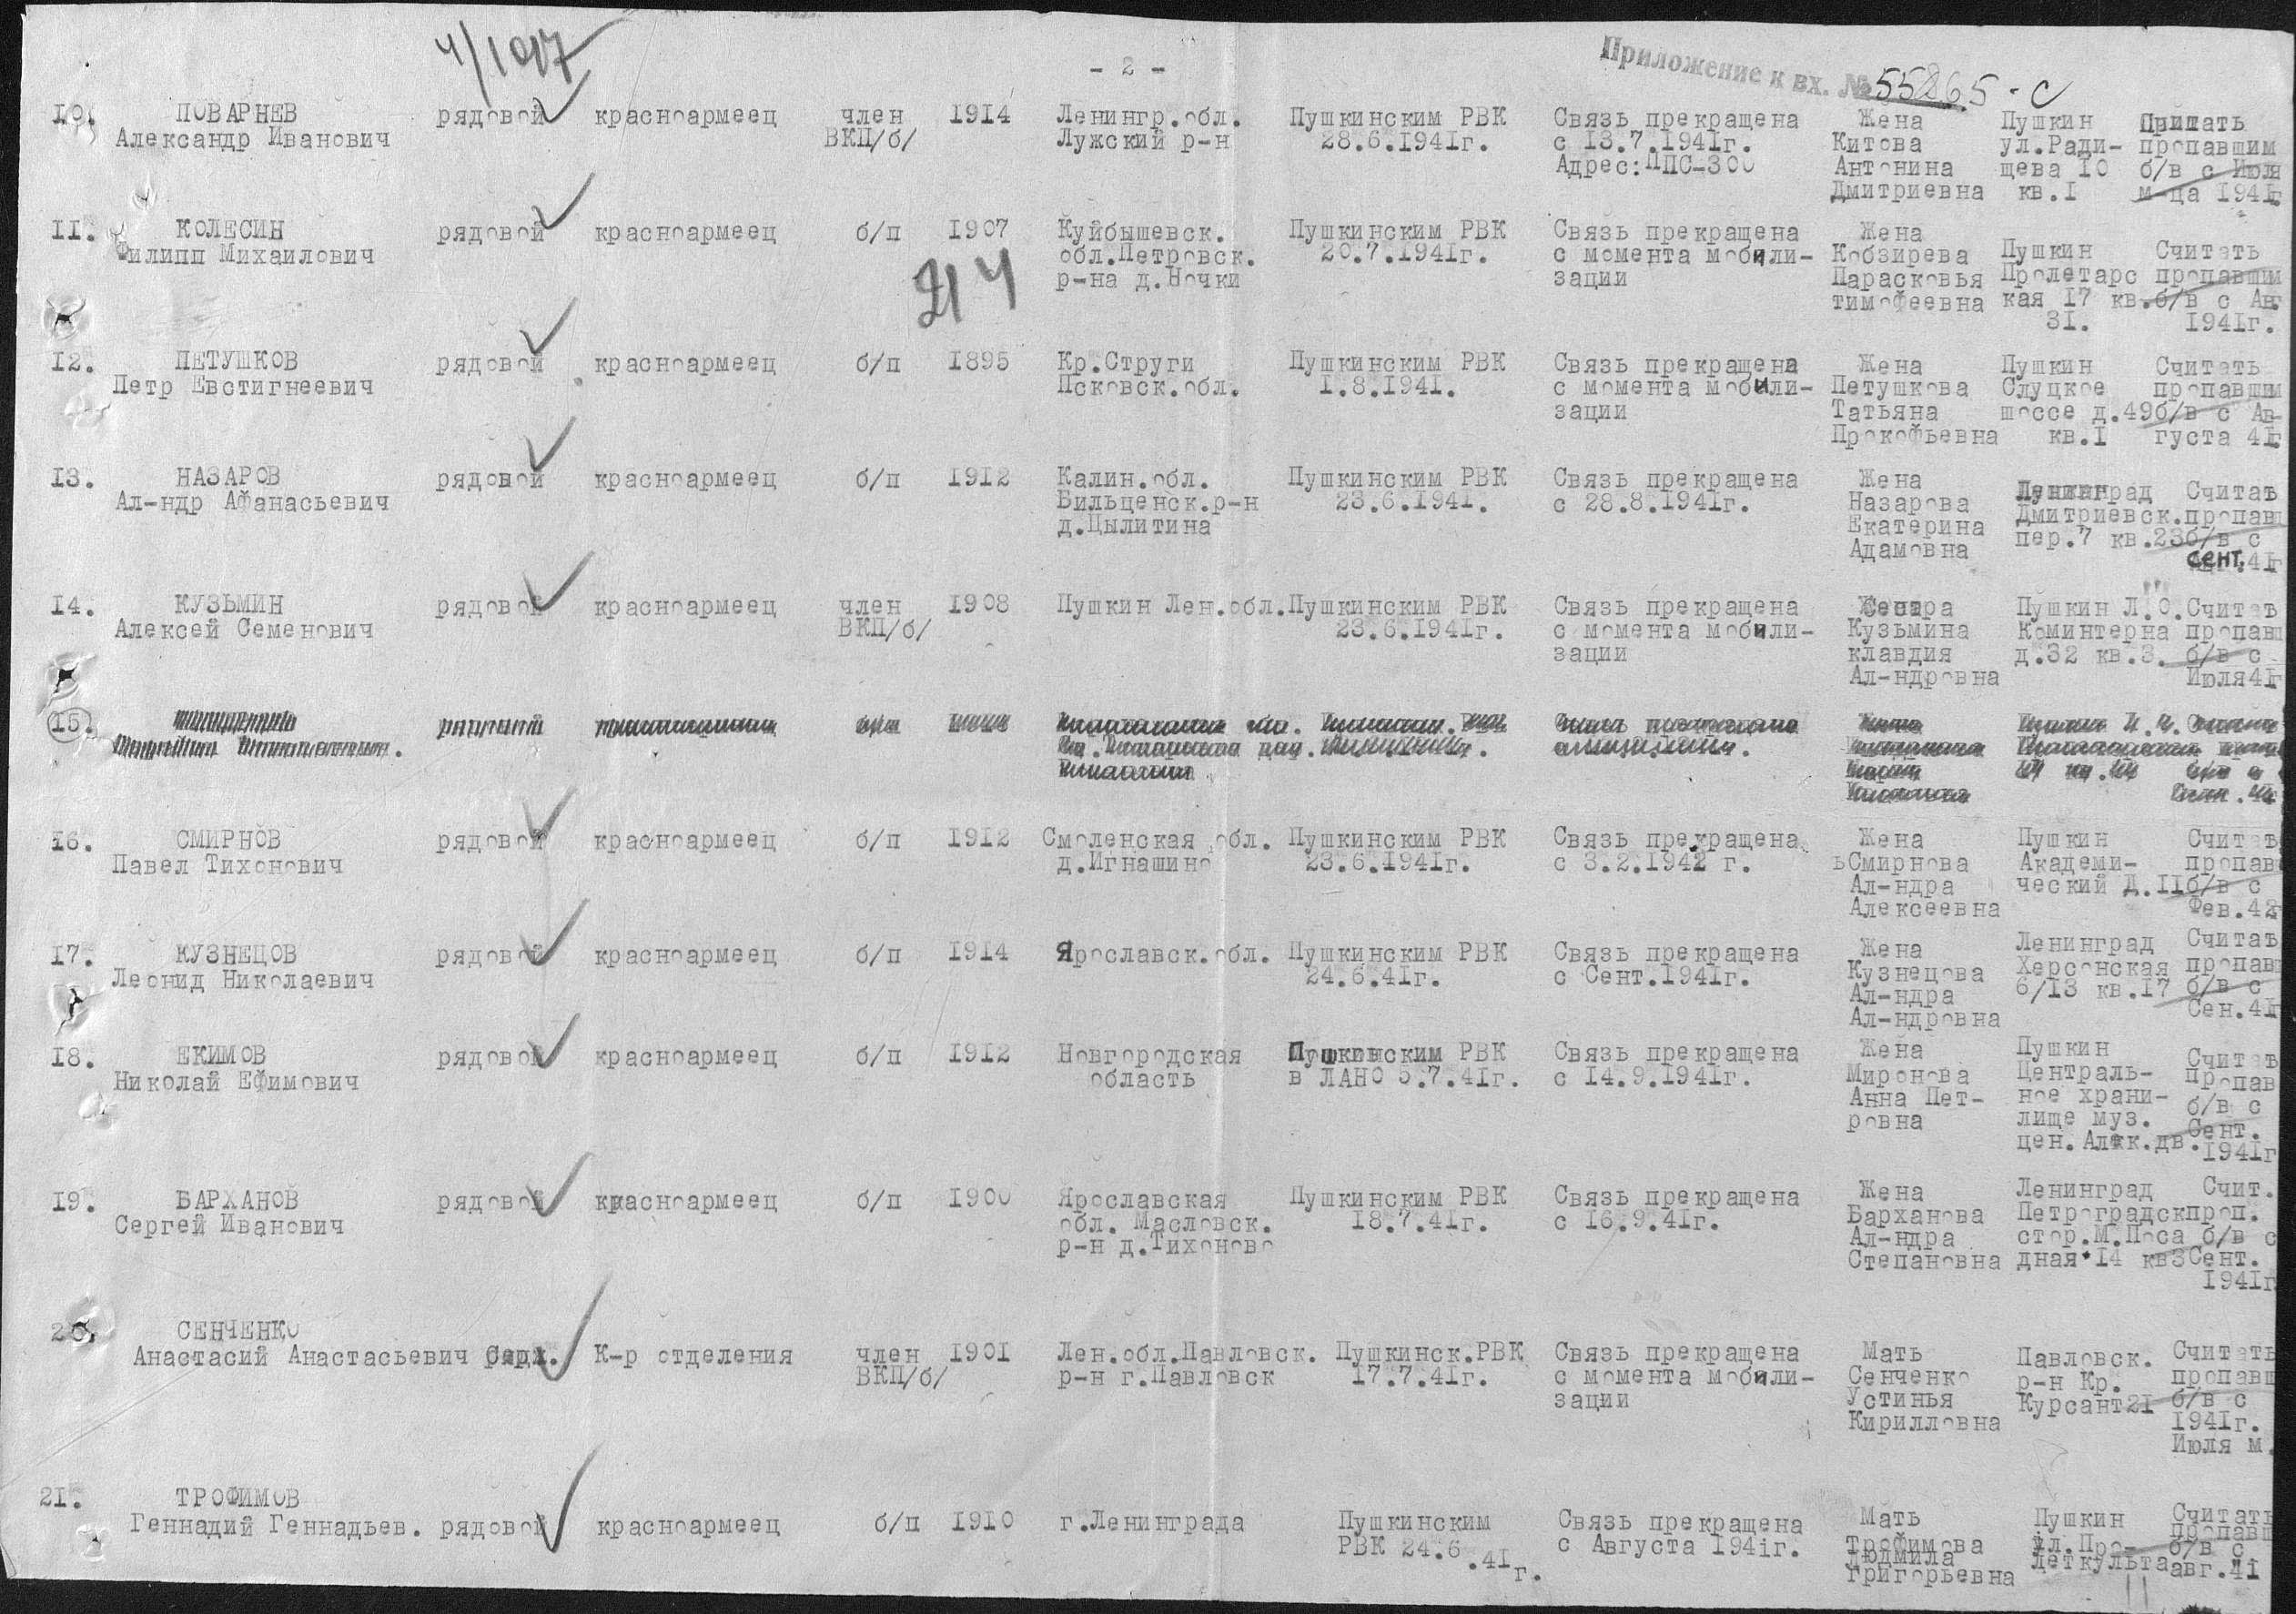 ч/1017
- 2 -
Приложение к вх. № 55265 - с
10. ПОВАРНЕВ рядовой красноармеец член 1914 Ленингр.обл. Пушкинским РВК Связь прекращена Жена Пушкин
Александр Иванович ВКП/б/ Лужский р-н 28.6.1941г. с 13.7.1941г. Китова ул.Ради- пропавшим
Адрес:ППС-300 Антонина щева 10 б/в с Июля
Дмитриевна кв.1 м-ца 1941г
11. КОЛЕСИН рядовой красноармеец б/п 1907 Куйбышевск. Пушкинским РВК Связь прекращена Жена
Филипп Михаилович обл.Петровск. 20.7.1941г. с момента мобили- Кобзирева Пушкин Считать
р-на д.Ночки зации Парасковья Пролетарс пропавшим
тимофеевна кая 17 кв. б/в с Ав.
31. 1941г.
12. ПЕТУШКОВ рядовой красноармеец б/п 1895 Кр.Струги Пушкинским РВК Связь прекращена Жена Пушкин Считать
Петр Евстигнеевич Псковск.обл. 1.8.1941. с момента мобили- Петушкова Слуцкое пропавшим
зации Татьяна шоссе д.49 б/в с Ав-
Прокофьевна кв.1 густа 41г
13. НАЗАРОВ рядовой красноармеец б/п 1912 Калин.обл. Пушкинским РВК Связь прекращена Жена Ленинград Считать
Ал-ндр Афанасьевич Бильценск.р-н 23.6.1941. с 28.8.1941г. Назарова Дмитриевск. пропавш
д.Цылитина Екатерина пер.7 кв.23 б/в с
Адамовна сент.41г
14. КУЗЬМИН рядовой красноармеец член 1908 Пушкин Лен.обл. Пушкинским РВК Связь прекращена Пушкин Л.О. Считать
Алексей Семенович ВКП/б/ 23.6.1941г. с момента мобили- Кузьмина Коминтерна пропавш
зации клавдия д.32 кв.3. б/в с
Ал-ндровна Июля41г
15.
16. СМИРНОВ рядовой красноармеец б/п 1912 Смоленская обл. Пушкинским РВК Связь прекращена Жена Пушкин Считать
Павел Тихонович д.Игнашино 23.6.1941г. с 3.2.1942 г. ьСмирнова Академи- пропав
Ал-ндра ческий Д.11 б/в с
Алексеевна Фев.42г
17. КУЗНЕЦОВ рядовой красноармеец б/п 1914 Ярославск.обл. Пушкинским РВК Связь прекращена Жена Ленинград Считать
Леонид Николаевич 24.6.41г. с Сент.1941г. Кузнецова Херсонская пропавш
Ал-ндра 6/13 кв.17 б/в с
Ал-ндровна Сен.41г
18. ЕКИМОВ рядовой красноармеец б/п 1912 Новгородская Пушкинским РВК Связь прекращена Жена Пушкин Считать
Николай Ефимович область в ЛАНО 5.7.41г. с 14.9.1941г. Миронова Централь- пропав
Анна Пет- ное храни- б/в с
ровна лище муз. Сент.
цен.Алек.дв. 1941г
19. БАРХАНОВ рядовой красноармеец б/п 1900 Ярославская Пушкинским РВК Связь прекращена Жена Ленинград Счит.
Сергей Иванович обл. Масловск. 18.7.41г. с 16.9.41г. Барханова Петроградск проп.
р-н д.Тихоново Ал-ндра стор.М.Поса б/в с
Степановна дная 14 кв3 Сент.
1941г
20. СЕНЧЕНКО
Анастасий Анастасьевич К-р отделения член 1901 Лен.обл.Павловск. Пушкинск.РВК Связь прекращена Мать Павловск. Считать
ВКП/б/ р-н г.Павловск 17.7.41г. с момента мобили- Сенченко р-н Кр. пропавш
зации Устинья Курсант21 б/в с
Кирилловна 1941г.
Июля м.
21. ТРОФИМОВ
Геннадий Геннадьев. рядовой красноармеец б/п 1910 г.Ленинграда Пушкинским Связь прекращена Мать Пушкин Считать
РВК 24.6.41г. с Августа 1941г. Трофимова ул.Про- пропавш
Людмила леткульта б/в с
Григорьевна авг.41